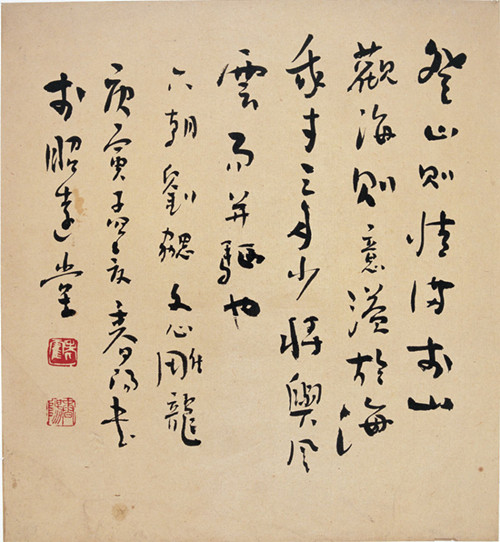 登山則情滿於山
觀海則意溢於海
我才之多少將與風
雲而并驅也
六朝劉勰文心雕龍
庚寅書
於昭堂